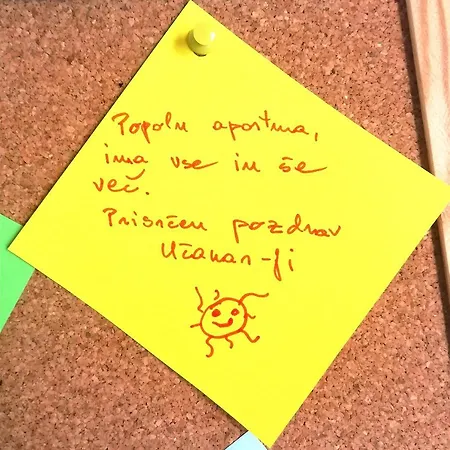 Popoln apartma,
ima vse in še
več.
Prisrčen pozdrav